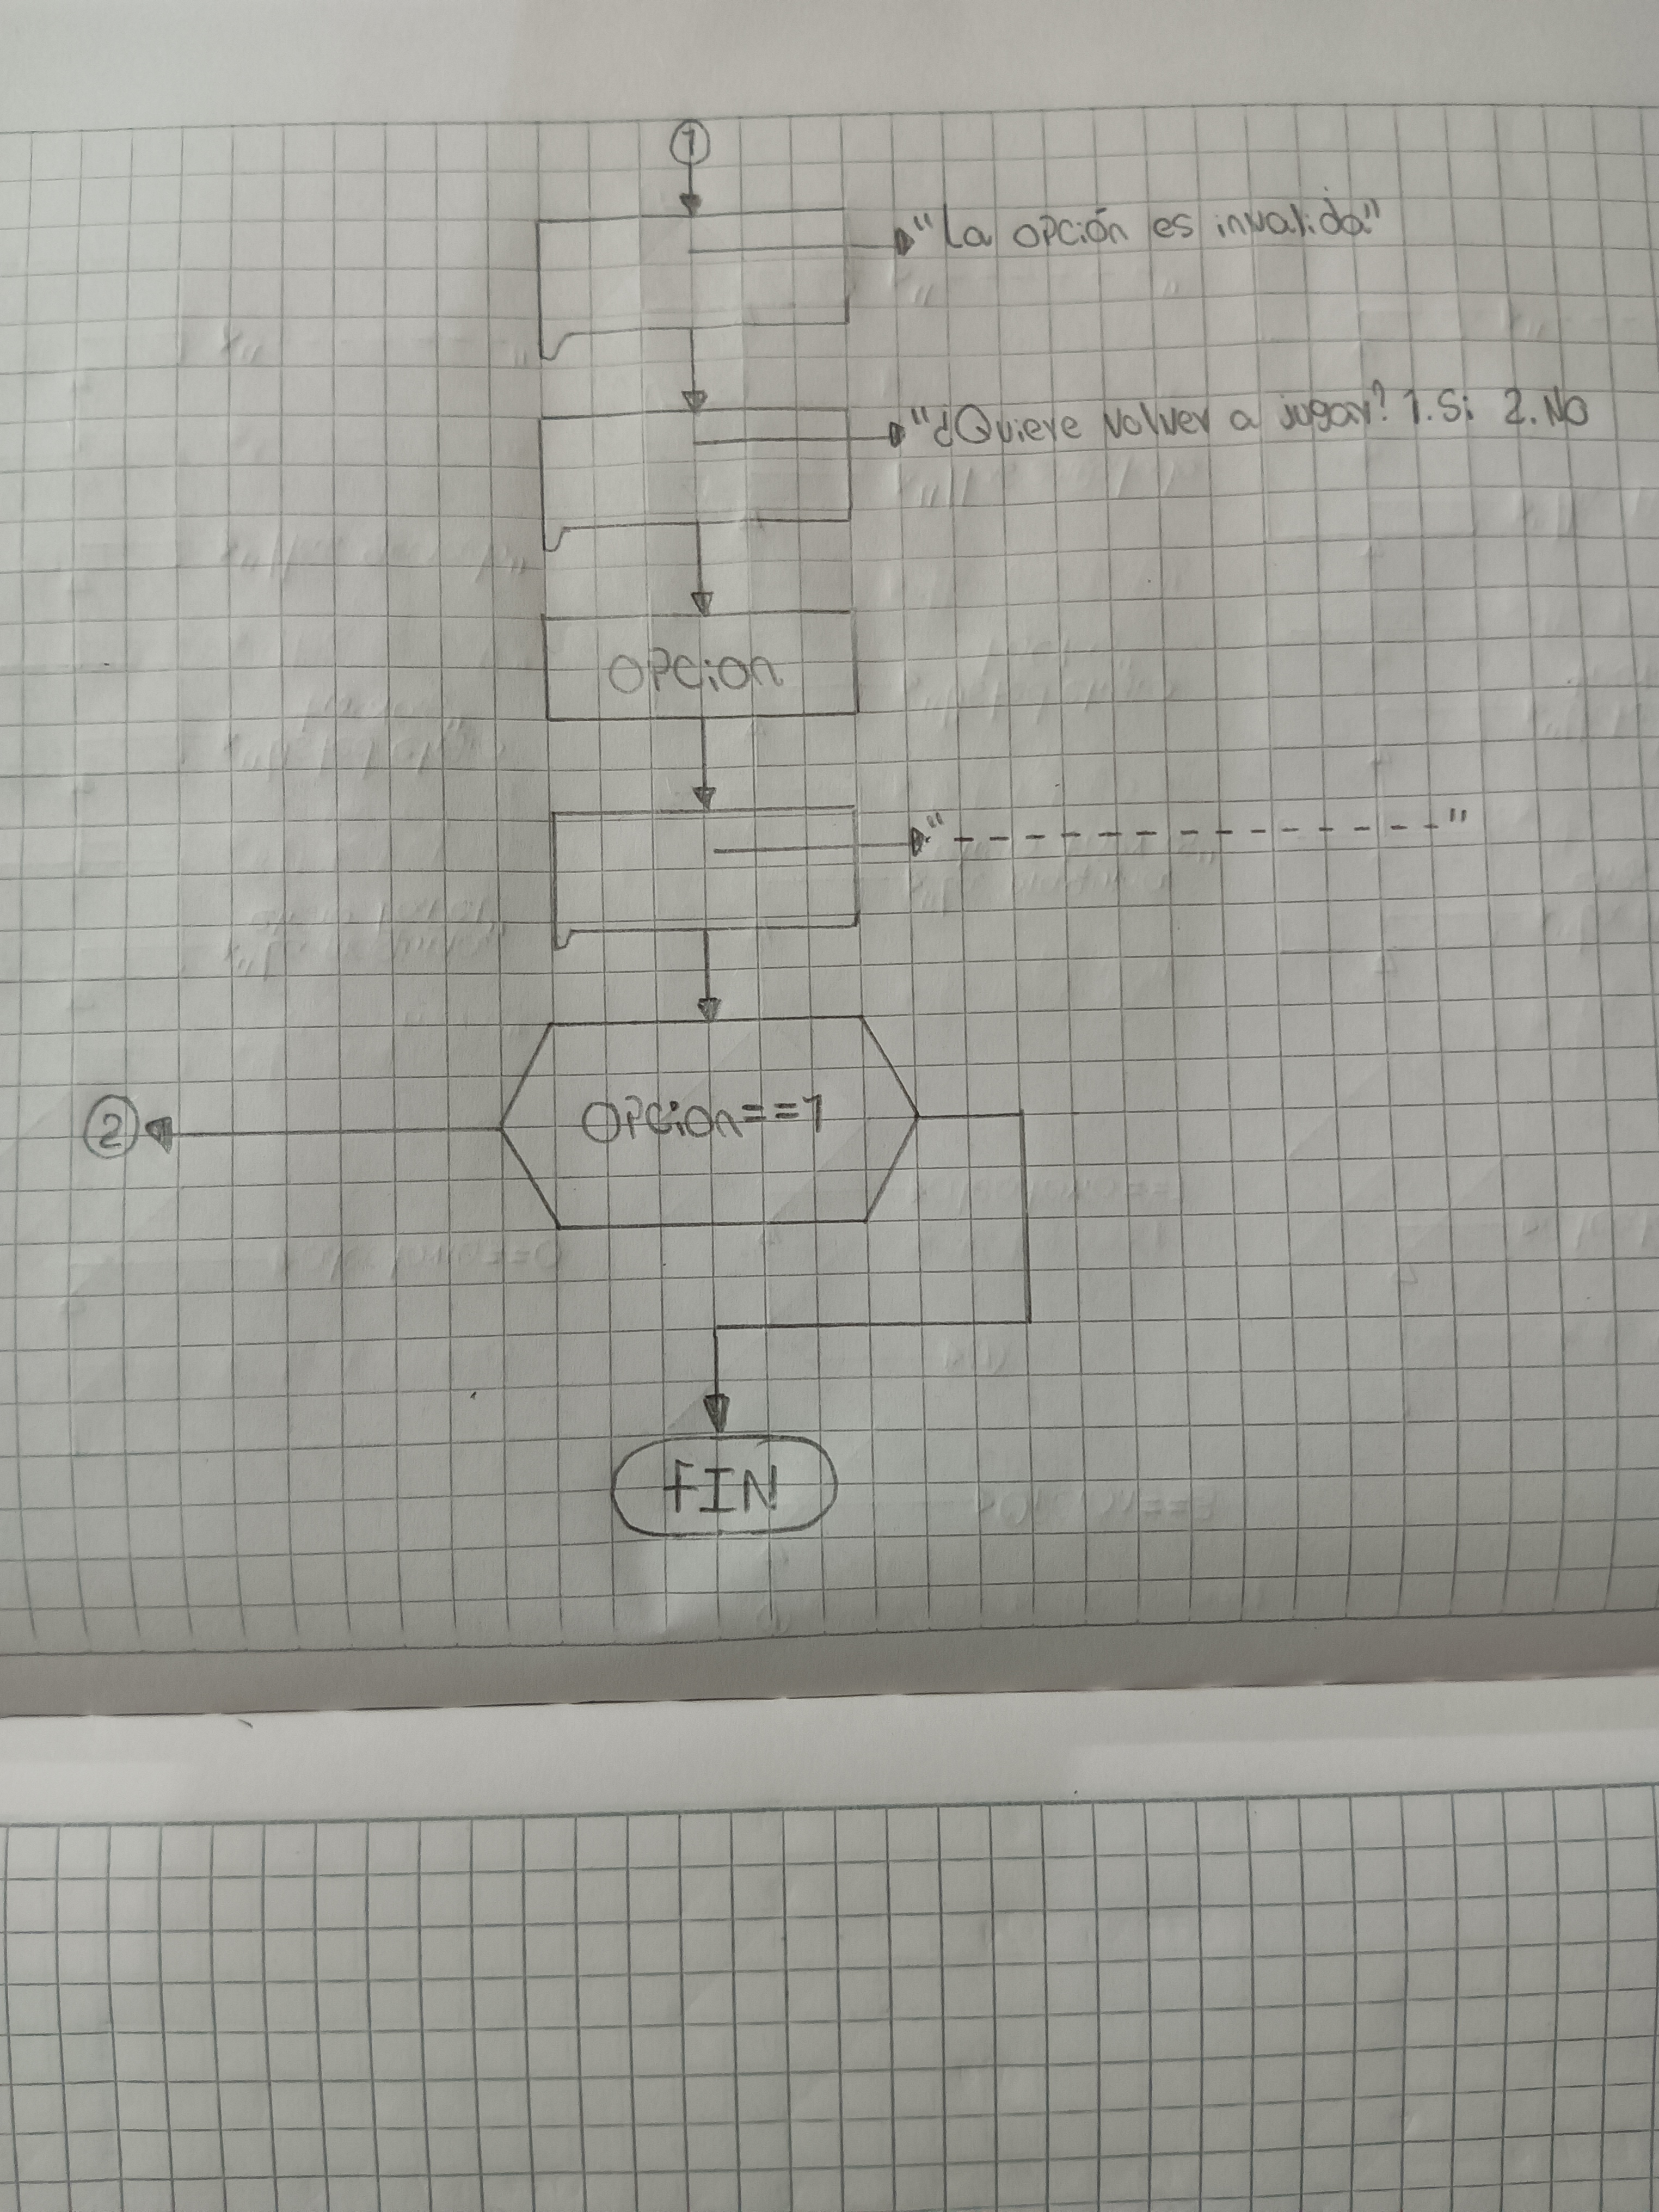 1
"La opción es invalida"
"¿Quiere volver a jugar? 1.Si 2.No
OPCion
"-------------"
OPCion==1
2
FIN